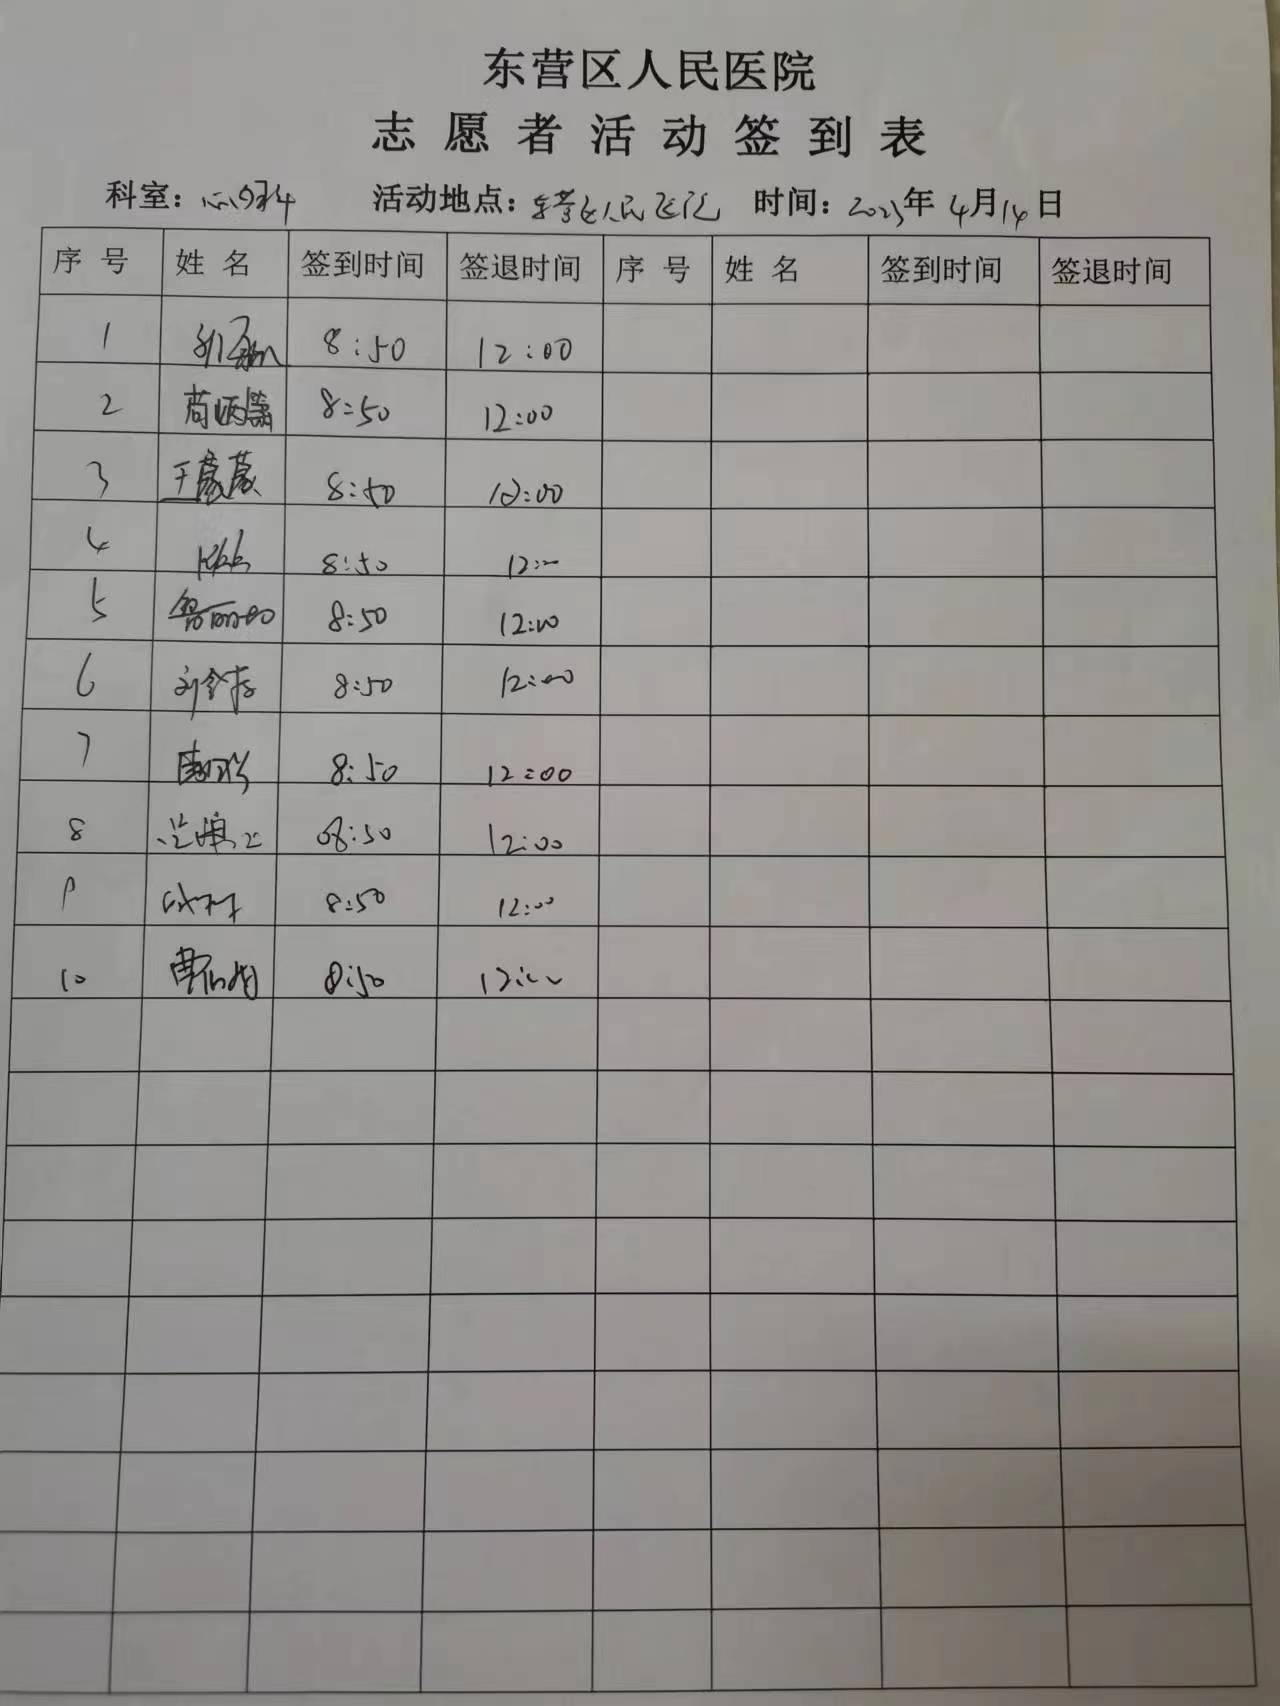 东营区人民医院
志愿者活动签到表
科室：心内科 活动地点：东营区人民医院 时间：2023年4月14日
序号 姓名 签到时间 签退时间 序号 姓名 签到时间 签退时间
1 8:50 12:00
2 8:50 12:00
3 王蒙蒙 8:50 12:00
4 8:50 12:00
5 8:50 12:00
6 刘金存 8:50 12:00
7 8:50 12:00
8 08:50 12:00
9 8:50 12:00
10 8:50 12:00